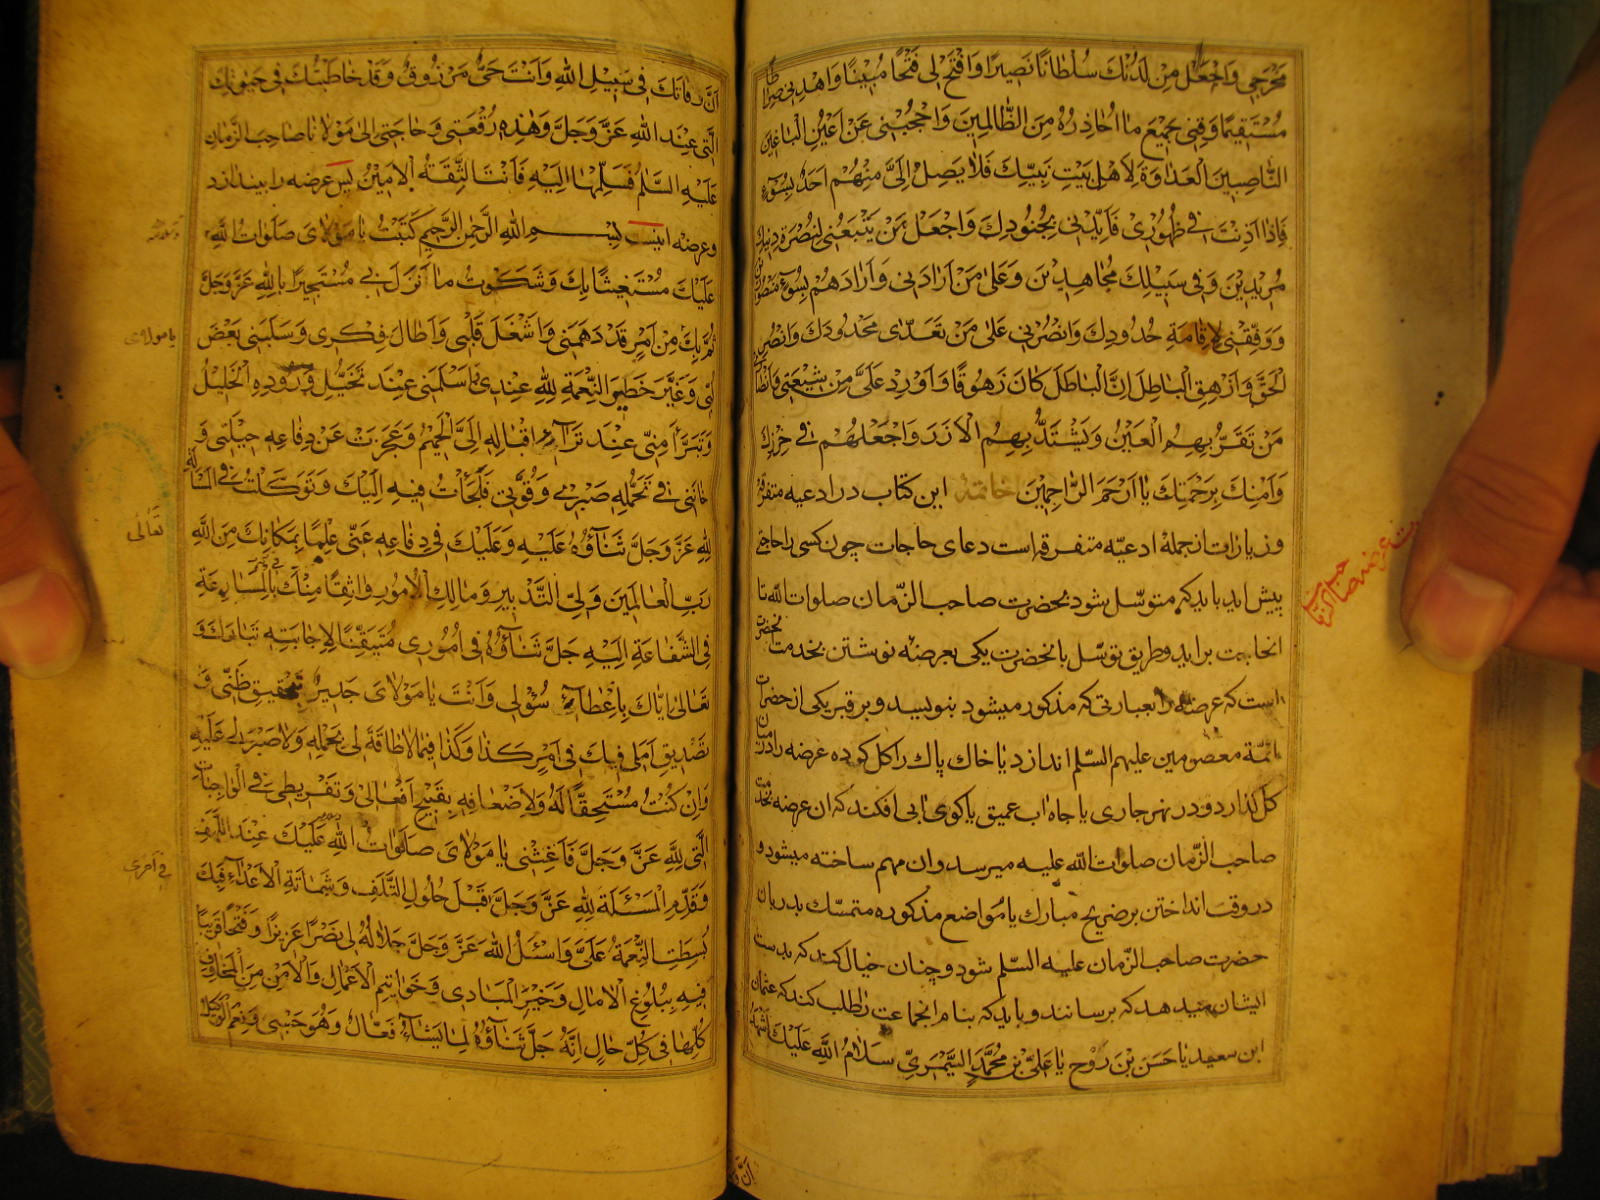 مَخْرَجِي وَاجْعَلْ مِنْ لَدُنْكَ سُلْطَانًا نَصِيرًا وَافْتَحْ لِي فَتْحًا مُبِينًا وَاهْدِنِي صِرَاطًا
مُسْتَقِيمًا وَقِنِي جَمِيعَ مَا اُحَاذِرُهُ مِنَ الظَّالِمِينَ وَاحْجُبْنِي عَنْ اَعْيُنِ الْبَاغِينَ
النَّاصِبِينَ الْعَدَاوَةَ لِاَهْلِ بَيْتِ نَبِيِّكَ فَلَا يَصِلُ اِلَيَّ مِنْهُمْ اَحَدٌ بِسُوءٍ
فَاِذَا اَذِنْتَ فِي ظُهُورِي فَاَيِّدْنِي بِجُنُودِكَ وَاجْعَلْ مَنْ يَتْبَعُنِي لِنُصْرَةِ دِينِكَ
مُرِيدِينَ وَفِي سَبِيلِكَ مُجَاهِدِينَ وَعَلَى مَنْ اَرَادَنِي وَاَرَادَهُمْ بِسُوءٍ مَنْصُورِينَ
وَوَفِّقْنِي لِاِقَامَةِ حُدُودِكَ وَانْصُرْنِي عَلَى مَنْ تَعَدَّى مَحْدُودَكَ وَانْصُرِ
الْحَقَّ وَازْهِقِ الْبَاطِلَ اِنَّ الْبَاطِلَ كَانَ زَهُوقًا وَاَوْرِدْ عَلَيَّ مِنْ شِيعَتِي وَاَنْصَارِي
مَنْ تَقَرُّ بِهِمُ الْعَيْنُ وَيَشْتَدُّ بِهِمُ الْاَزْرُ وَاجْعَلْهُمْ فِي حِرْزِكَ
وَاَمْنِكَ بِرَحْمَتِكَ يَا اَرْحَمَ الرَّاحِمِينَ خاتمه اين كتاب در ادعيه متفرقه
وزيارات از جمله ادعيّه متفرقه است دعاى حاجات چون كسى را حاجتى
پيش ايد بايد كه متوسّل شود بحضرت صاحب الزّمان صلوات الله تا
انحاجت برايد وطريق توسّل بانحضرت يكى بعرضه نوشتن بخدمت انحضرت
است كه عرضه را بعبارتى كه مذكور ميشود بنويسد و بر قبر يكى از حضرات
ائمّة معصومين عليهم السّلم اندازد يا خاك پاك را كل كرده عرضه را در ميان
كل كذارد و در نهر جارى يا چاه اب عميق يا كوى ابى افكند كه ان عرضه بخدمت
صاحب الزّمان صلوات الله عليه ميرسد وان مهم ساخته ميشود و
در وقت انداختن بر ضريح مبارك يا مواضع مذكوره متمسّك بدربان
حضرت صاحب الزّمان عليه السّلم شود و چنان خيال كند كه بدست
ايشان ميدهد كه برسانند و بايد كه بنام انجماعت را طلب كند كه عثمان
ابن سعيد يا حَسَنَ بْنَ رَوْحٍ يَا عَلِيَّ بْنَ مُحَمَّدٍ السَّيْمَرِيَّ سَلَامُ اللَّهِ عَلَيْكَ اَشْهَدُ
اَنَّ وَ
اَنَّ وَفَاتَكَ فِي سَبِيلِ اللهِ وَاَنْتَ حَيٌّ مَرْزُوقٌ وَقَدْ خَاطَبْتُكَ فِي حَيٰوتِكَ
الَّتِي عِنْدَ اللهِ عَزَّ وَجَلَّ وَهٰذِهِ رُقْعَتِي وَحَاجَتِي اِلَى مَوْلَانَا صَاحِبِ الزَّمَانِ
عَلَيْهِ السَّلٰمُ فَسَلِّمْهَا اِلَيْهِ فَاَنْتَ الثِّقَةُ الْاَمِينُ پس عرضه را بيندازد
وعرضه اينست بِسْمِ اللهِ الرَّحْمٰنِ الرَّحِيمِ كَتَبْتُ يَا مَوْلَايَ صَلَوَاتُ اللهِ
عَلَيْكَ مُسْتَغِيثًا بِكَ وَشَكَوْتُ مَا اَنْزَلَ بِي مُسْتَجِيرًا بِاللهِ عَزَّ وَجَلَّ
ثُمَّ بِكَ مِنْ اَمْرٍ قَدْ دَهَمَنِي وَاَشْغَلَ قَلْبِي وَاَطَالَ فِكْرِي وَسَلَبَنِي بَعْضَ
لُبِّي وَغَيَّرَ خَطِيرَ النِّعْمَةِ لِلهِ عِنْدِي اَسْلَمَنِي عِنْدَ تَخَيُّلِ وُرُودِهِ الْخَلِيلُ
وَتَبَرَّأَ مِنِّي عِنْدَ تَرَائِي اِقْبَالِهِ اِلَيَّ الْحَمِيمُ وَعَجَزَتْ عَنْ دِفَاعِهِ حِيلَتِي وَ
خَانَنِي فِي تَحَمُّلِهِ صَبْرِي وَقُوَّتِي فَلَجَأْتُ فِيهِ اِلَيْكَ وَتَوَكَّلْتُ فِي الْمَسْأَلَةِ
لِلهِ عَزَّ وَجَلَّ ثَنَاؤُهُ عَلَيْهِ وَعَلَيْكَ فِي دِفَاعِهِ عَنِّي عِلْمًا بِمَكَانِكَ مِنَ اللهِ
رَبِّ الْعَالَمِينَ وَلِيِّ التَّدْبِيرِ وَمَالِكِ الْاُمُورِ وَاثِقًا مِنْكَ بِالْمُسَارَعَةِ
فِي الشَّفَاعَةِ اِلَيْهِ جَلَّ ثَنَاؤُهُ فِي اُمُورِي مُتَيَقِّنًا لِاِجَابَتِهِ تَبَارَكَ وَ
تَعَالَى اِيَّاكَ بِاِعْطَائِي سُؤْلِي وَاَنْتَ يَا مَوْلَايَ جَدِيرٌ بِتَحْقِيقِ ظَنِّي وَ
تَصْدِيقِ اَمَلِي فِيكَ فِي اَمْرِ كَذَا وَكَذَا فِيمَا لَا طَاقَةَ لِي بِحَمْلِهِ وَلَا صَبْرَ لِي عَلَيْهِ
وَاِنْ كُنْتُ مُسْتَحِقًّا لَهُ وَلِاَضْعَافِهِ بِقَبِيحِ اَفْعَالِي وَتَفْرِيطِي فِي الْوَاجِبَاتِ
الَّتِي لِلهِ عَزَّ وَجَلَّ فَاَغِثْنِي يَا مَوْلَايَ صَلَوَاتُ اللهِ عَلَيْكَ عِنْدَ اللَّهْفِ
وَقَدِّمِ الْمَسْئَلَةَ لِلهِ عَزَّ وَجَلَّ قَبْلَ حُلُولِ التَّلَفِ وَشَمَاتَةِ الْاَعْدَاءِ فَبِكَ
بُسِطَتِ النِّعْمَةُ عَلَيَّ وَاسْئَلُ اللهَ عَزَّ وَجَلَّ جَلَالُهُ لِي نَصْرًا عَزِيزًا وَفَتْحًا قَرِيبًا
فِيهِ بِبُلُوغِ الْاٰمَالِ وَخَيْرِ الْمَبَادِي وَخَوَاتِيمِ الْاَعْمَالِ وَالْاَمْنِ مِنَ الْمَخَاوِفِ
كُلِّهَا فِي كُلِّ حَالٍ اِنَّهُ جَلَّ ثَنَاؤُهُ لِمَا يَشَاءُ فَعَّالٌ وَهُوَ حَسْبِي وَنِعْمَ الْوَكِيلُ
يا مولاى
تَعَالَى
فى امرى